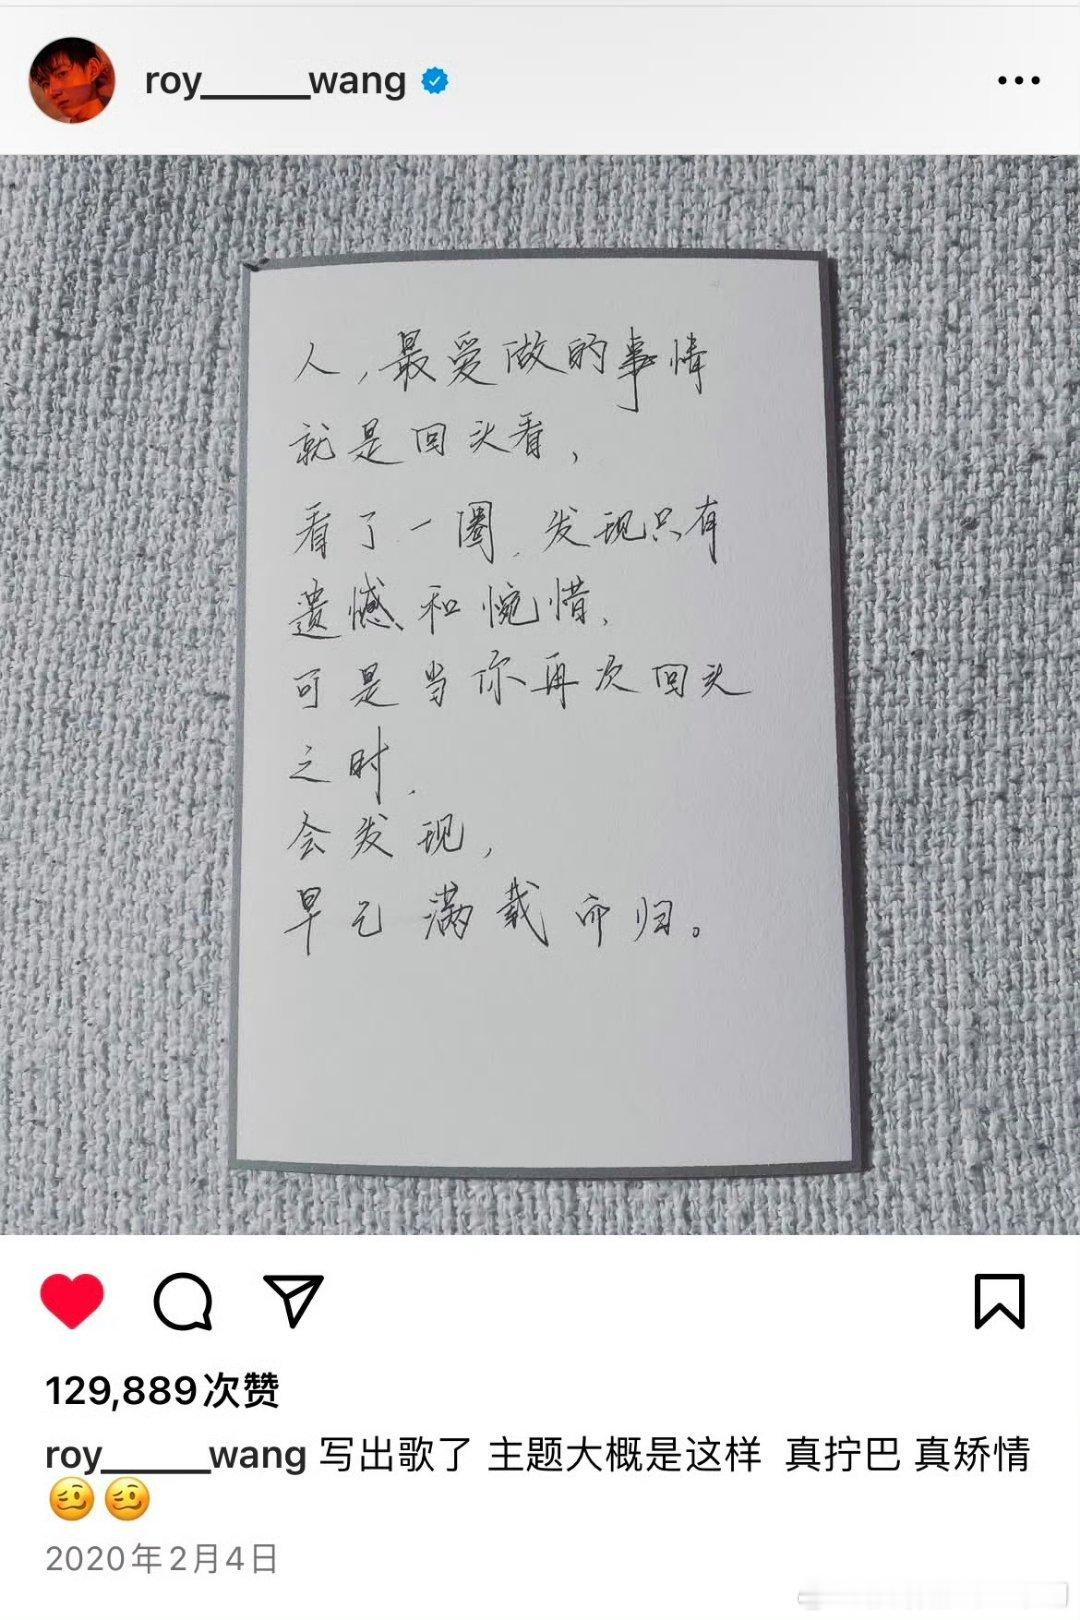 roy______wang
人,最爱做的事情
就是回头看,
看了一圈,发现只有
遗憾和惋惜,
可是当你再次回头
之时,
会发现,
早已满载而归。
129,889次赞
roy______wang 写出歌了 主题大概是这样 真拧巴 真矫情
🥴🥴
2020年2月4日